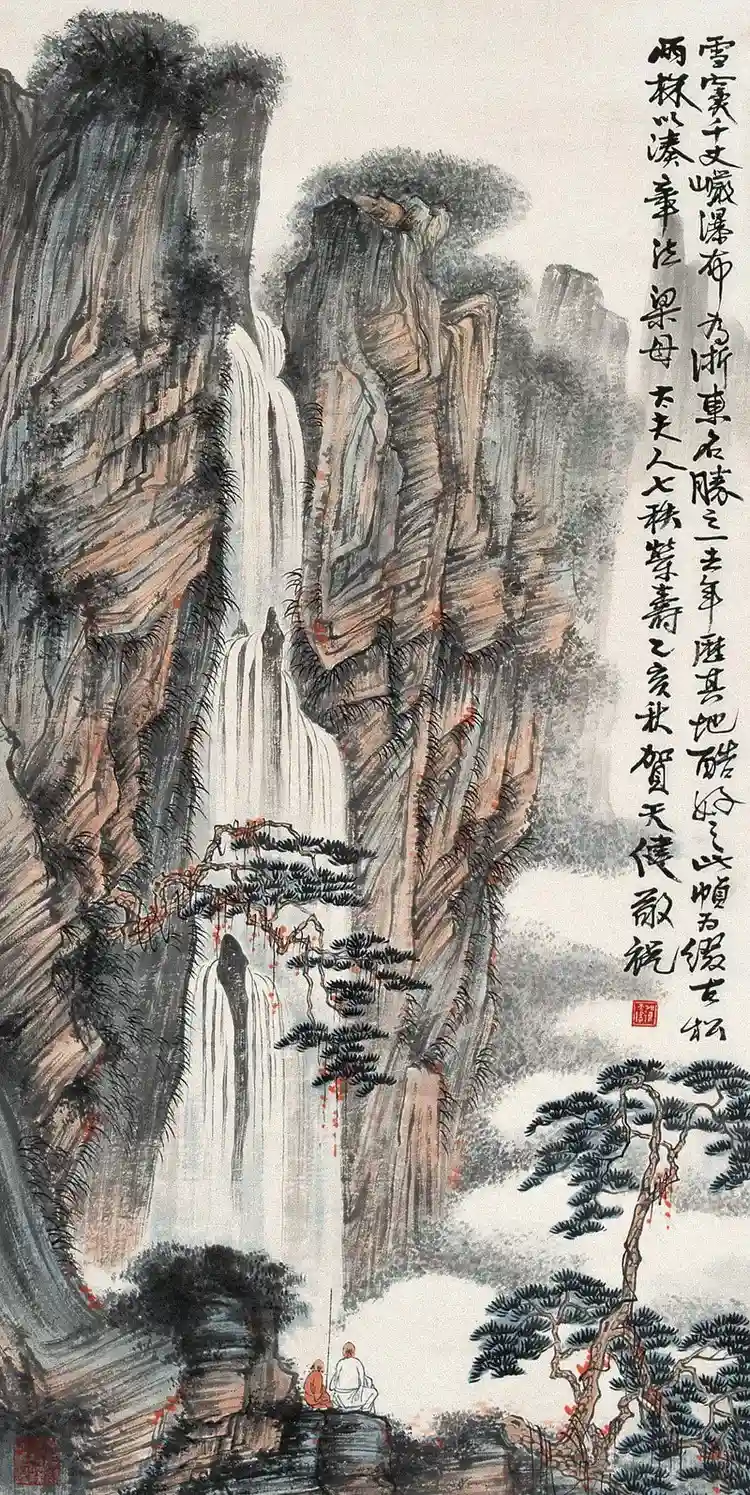 雪窦千丈巗瀑布为浙東名勝之一去年遊其地酷好之此幀为缀古松
兩株以湊章法梁母大夫人七秩榮壽乙亥秋賀天健敬祝